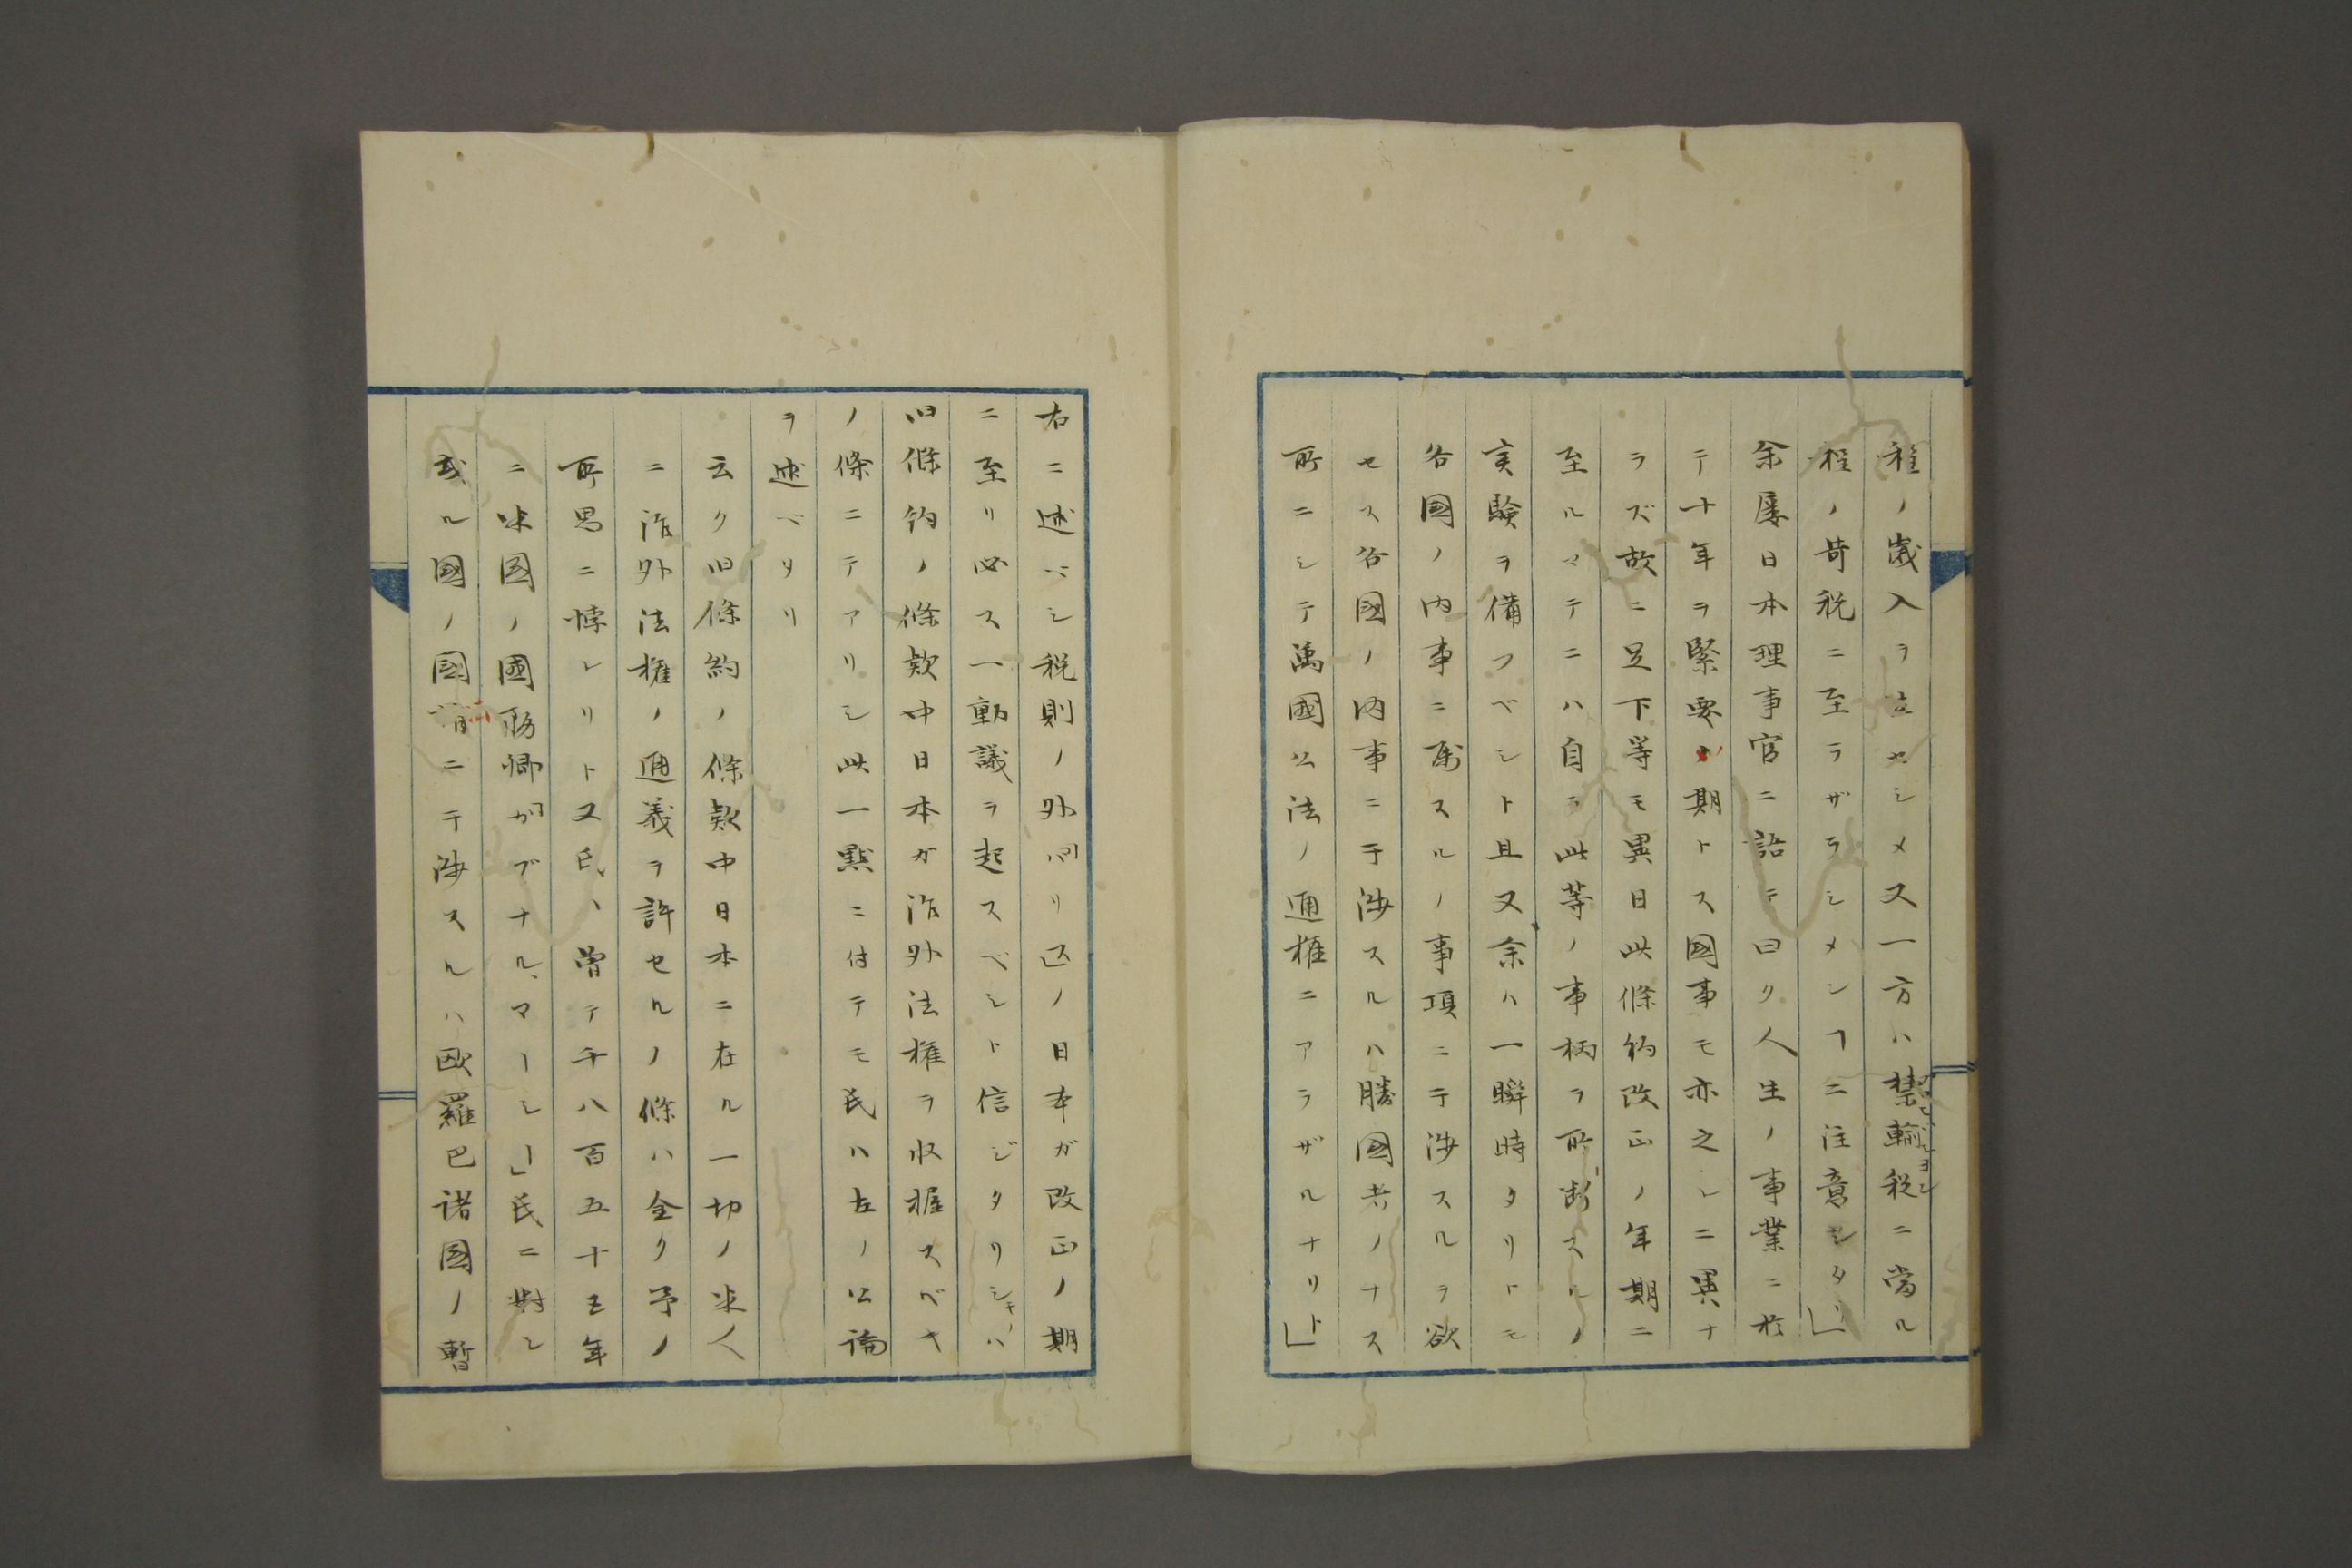 程ノ歳入ヲ立セシメ又一方ハ禁輸税ニ當ル
程ノ苛税ニ至ラザラシメンヿニ注意シタリ」
余屡日本理事官ニ語テ曰ク人生ノ事業ニ於
テ十年ヲ緊要ノ期トス國事モ亦之レニ異ナ
ラズ故ニ足下等モ異日此條約改正ノ年期ニ
至ルマテニハ自ラ此等ノ事柄ヲ所断スルノ
実験ヲ備フベシト且又余ハ一瞬時タリトモ
各國ノ内事ニ属スルノ事項ニ干渉スルヲ欲
セス各國ノ内事ニ干渉スルハ勝國者ノナス
所ニシテ萬國公法ノ通権ニアラザルナリト」
右ニ述ベシ税則ノ外ハルリス氏ノ日本ガ改正ノ期
ニ至リ必ス一動議ヲ起スベシト信ジタリシモノハ
旧條約ノ條款中日本ガ治外法権ヲ収握スベキ
ノ條ニテアリシ此一點ニ付テモ氏ハ左ノ公論
ヲ述ベタリ
云ク旧條約ノ條款中日本ニ在ル一切ノ米人
ニ治外法権ノ通義ヲ許セルノ條ハ全ク予ノ
所思ニ悖レリト又氏ハ曽テ千八百五十五年
ニ米国ノ國務卿ガブナルマーシー」氏ニ對シ
或ル國ノ國者ニ干渉スルハ欧羅巴諸國ノ暫